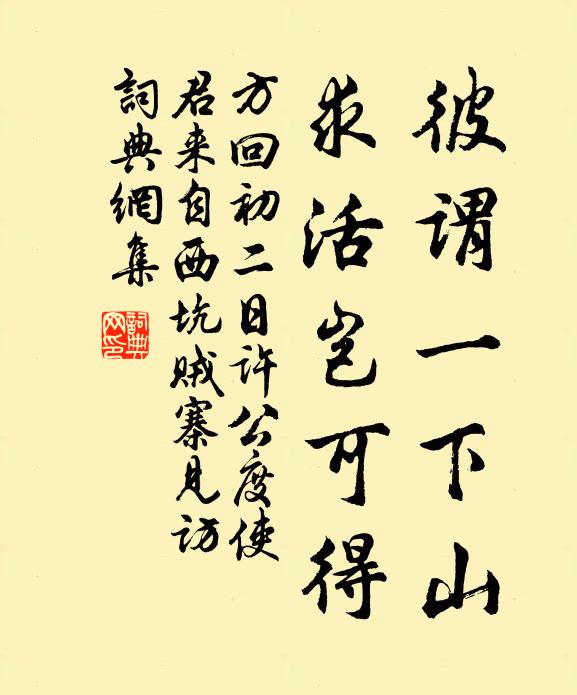 彼謂一下山
求活豈可得
方回初二日許公度使
君来自西坑贼寨見访
詞典網集
詞典
网印